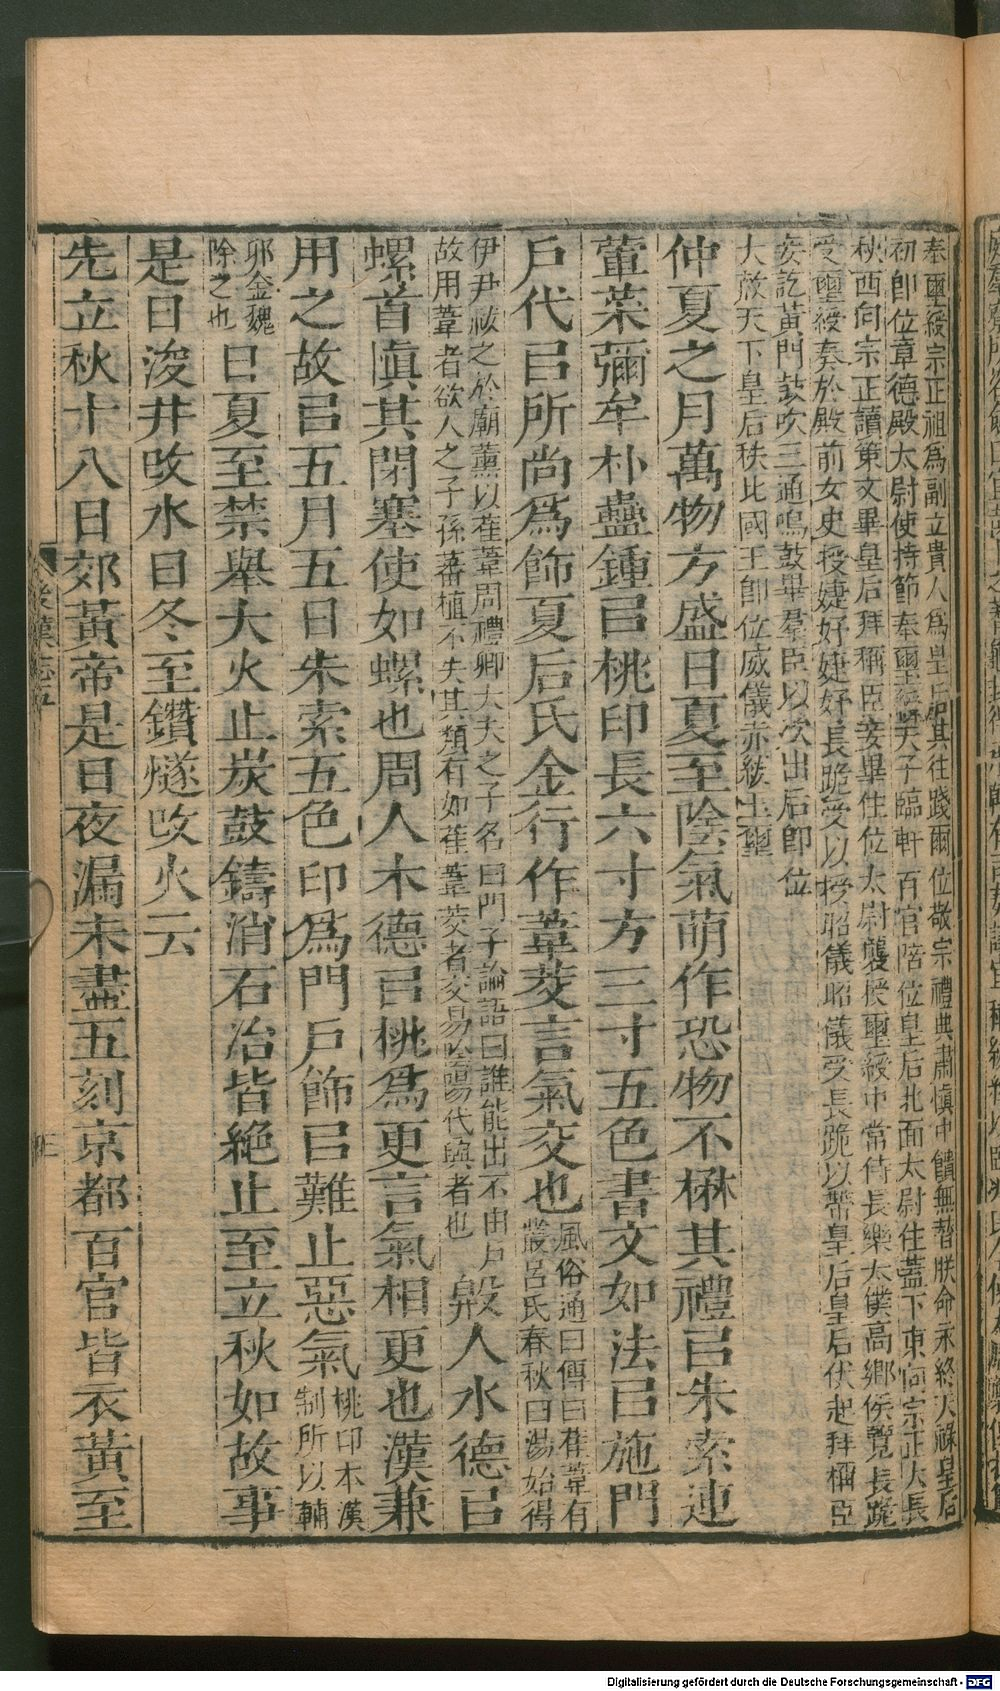 奉璽綬宗正祖爲副立貴人爲皇后其往踐爾位敬宗禮典肅愼中饋無替朕命永終天祿皇后
初即位章德殿太尉使持節奉璽綬天子臨軒百官陪位皇后北面太尉住蓋下東向宗正大長
秋西向宗正讀策文畢皇后拜稱臣妾畢住位太尉襲授璽綬中常侍長樂太僕高鄉侯覽長跪
受璽綬奏於殿前女史授婕妤婕妤長跪受以授昭儀昭儀受長跪以帶皇后皇后伏起拜稱臣
妾訖黃門鼓吹三通鳴鼓畢羣臣以次出后即位
大赦天下皇后秩比國王即位威儀赤紱玉璽
仲夏之月萬物方盛日夏至陰氣萌作恐物不楙其禮㠯朱索連
葷菜彌牟朴蠱鍾㠯桃印長六寸方三寸五色書文如法㠯施門
戶代㠯所尚爲飾夏后氏金行作葦茭言氣交也
風俗通曰傳曰萑葦有
藂呂氏春秋曰湯始得
伊尹祓之於廟薰以萑葦周禮卿大夫之子名曰門子論語曰誰能出不由戶
故用葦者欲人之子孫蕃植不失其類有如萑葦茭者交易陰陽代興者也
殷人水德㠯
螺首愼其閉塞使如螺也周人木德㠯桃爲更言氣相更也漢兼
用之故㠯五月五日朱索五色印爲門戶飾㠯難止惡氣
桃印本漢
制所以輔
卯金魏
除之也
日夏至禁舉大火止炭鼓鑄消石冶皆絶止至立秋如故事
是日浚井攺水日冬至鑽燧攺火云
先立秋十八日郊黃帝是日夜漏未盡五刻京都百官皆衣黃至
後漢志五
Digitalisierung gefördert durch die Deutsche Forschungsgemeinschaft - DFG